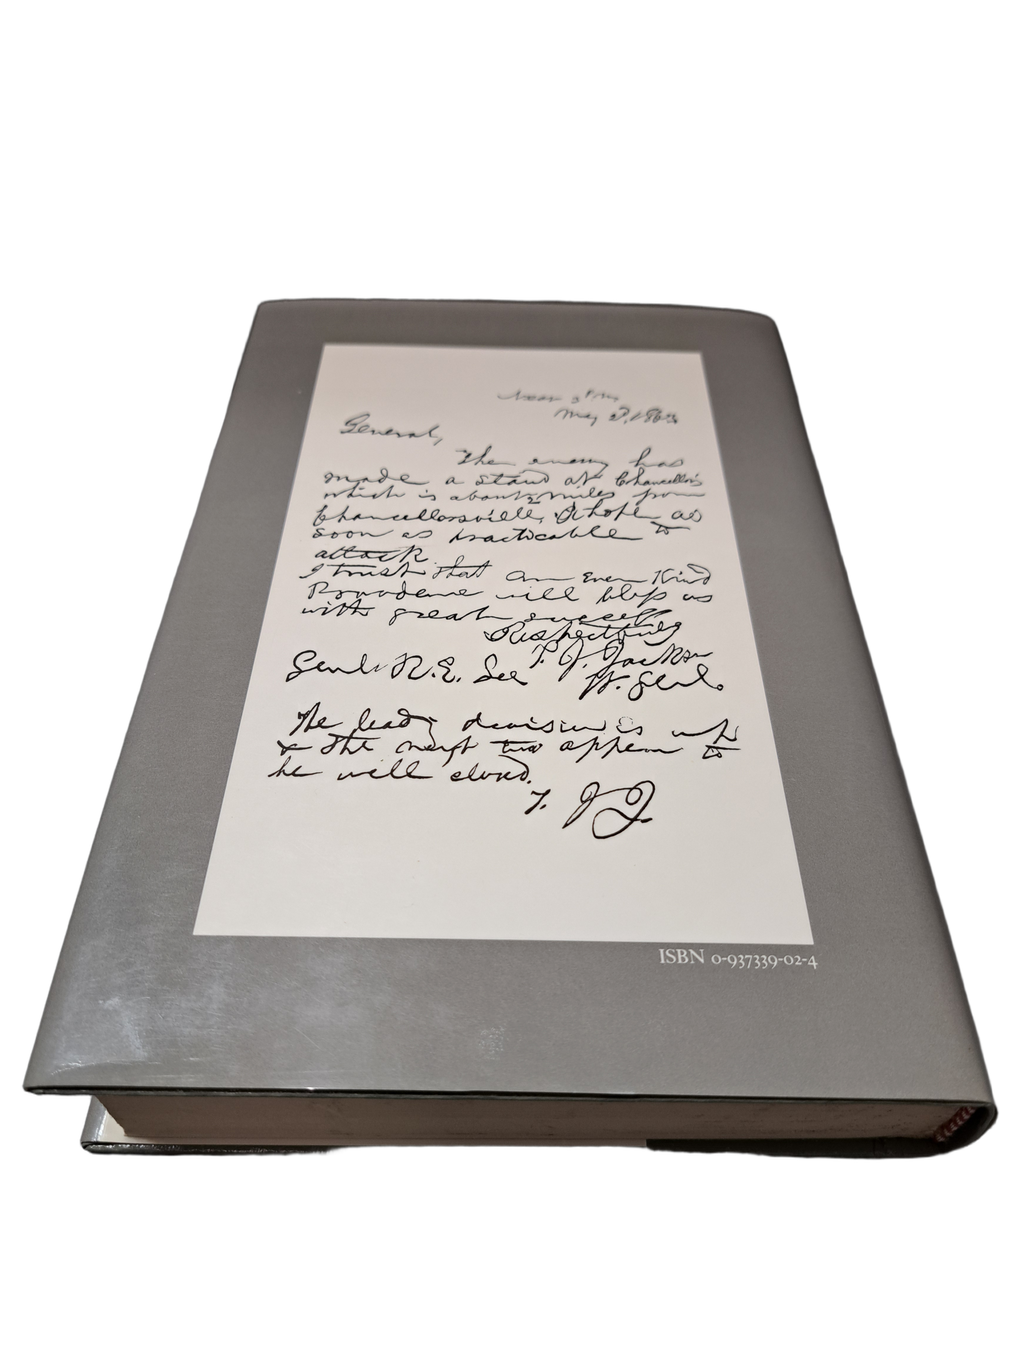 Near 3 P.M.
May 2d, 1863
General,
The enemy has
made a stand at Chancellor's
which is about 2 miles from
Chancellorsville. I hope as
soon as practicable to
attack.
I trust that an Ever Kind
Providence will bless us
with great success.
Respectfully
T. J. Jackson
Genl. R. E. Lee
Lt. Genl.
The leadg division is up
& the next two appear to
be well closed.
T. J. J.
ISBN 0-937339-02-4